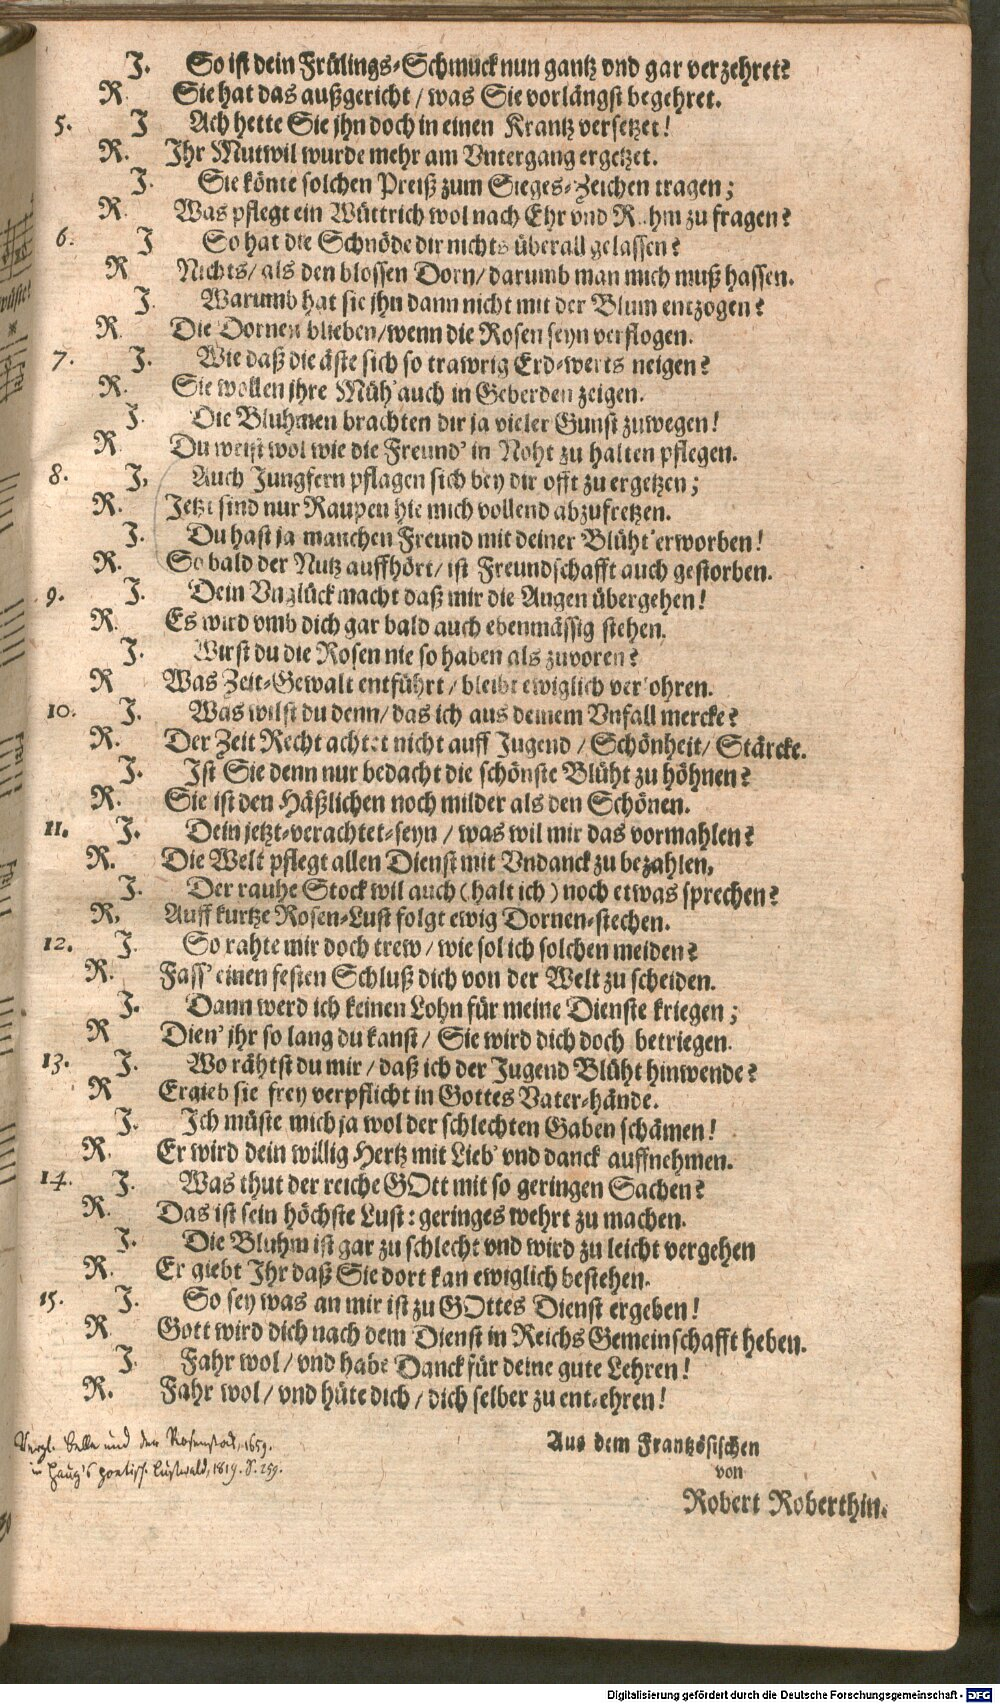 J. So ist dein Frülings-Schmuck nun gantz vnd gar verzehret?
R. Sie hat das außgericht / was Sie vorlängst begehret.
5. J Ach hette Sie jhn doch in einen Krantz versetzet!
R. Jhr Mutwil wurde mehr am Vntergang ergetzet.
J. Sie könte solchen Preiß zum Sieges-Zeichen tragen;
R. Was pflegt ein Wüttrich wol nach Ehr vnd R.hm zu fragen?
6. J So hat die Schnöde dir nichts überall gelassen?
R Nichts / als den blossen Dorn / darumb man mich muß hassen.
J. Warumb hat sie jhn dann nicht mit der Blum entzogen?
R. Die Dornen blieben / wenn die Rosen seyn verflogen.
7. J. Wie daß die äste sich so trawrig Erd-werts neigen?
R. Sie wollen jhre Müh' auch in Geberden zeigen.
J. Die Bluhmen brachten dir ja vieler Gunst zuwegen!
R. Du weist wol wie die Freund' in Noht zu halten pflegen.
8. J. Auch Jungfern pflagen sich bey dir offt zu ergetzen;
R. Jetzt sind nur Raupen hie mich vollend abzufretzen.
J. Du hast ja manchen Freund mit deiner Blüht' erworben!
R. So bald der Nutz auffhört / ist Freundschafft auch gestorben.
9. J. Dein Vnglück macht daß mir die Augen übergehen!
R. Es wird vmb dich gar bald auch ebenmässig stehen.
J. Wirst du die Rosen nie so haben als zuvoren?
R Was Zeit-Gewalt entführt / bleibt ewiglich verlohren.
10. J. Was wilst du denn / das ich aus deinem Vnfall mercke?
R. Der Zeit Recht achtet nicht auff Jugend / Schönheit / Stärcke.
J. Ist Sie denn nur bedacht die schönste Blüht zu höhnen?
R. Sie ist den Häßlichen noch milder als den Schönen.
11. J. Dein jetzt-verachtet-seyn / was wil mir das vormahlen?
R. Die Welt pflegt allen Dienst mit Vndanck zu bezahlen,
J. Der rauhe Stock wil auch (halt ich) noch etwas sprechen?
R. Auff kurtze Rosen-Lust folgt ewig Dornen-stechen.
12. J. So rahte mir doch trew / wie sol ich solchen meiden?
R. Fass' einen festen Schluß dich von der Welt zu scheiden.
J. Dann werd ich keinen Lohn für meine Dienste kriegen;
R Dien' jhr so lang du kanst / Sie wird dich doch betriegen.
13. J. Wo rähtst du mir / daß ich der Jugend Blüht hinwende?
R Ergieb sie frey verpflicht in Gottes Vater-hände.
J. Jch müste mich ja wol der schlechten Gaben schämen!
R. Er wird dein willig Hertz mit Lieb' vnd danck auffnehmen.
14. J. Was thut der reiche GOtt mit so geringen Sachen?
R. Das ist sein höchste Lust: geringes wehrt zu machen.
J. Die Bluhm ist gar zu schlecht vnd wird zu leicht vergehen
R. Er giebt Jhr daß Sie dort kan ewiglich bestehen.
15. J. So sey was an mir ist zu GOttes Dienst ergeben!
R Gott wird dich nach dem Dienst in Reichs Gemeinschafft heben.
J. Fahr wol / vnd habe Danck für deine gute Lehren!
R. Fahr wol / vnd hüte dich / dich selber zu ent-ehren!
Aus dem Frantzösischen
von
Robert Roberthin.
Vergl. Selle und der Rosenstock, 1659.
in Haug's poetisch. Lustwald, 1819. S. 259.
Digitalisierung gefördert durch die Deutsche Forschungsgemeinschaft - DFG